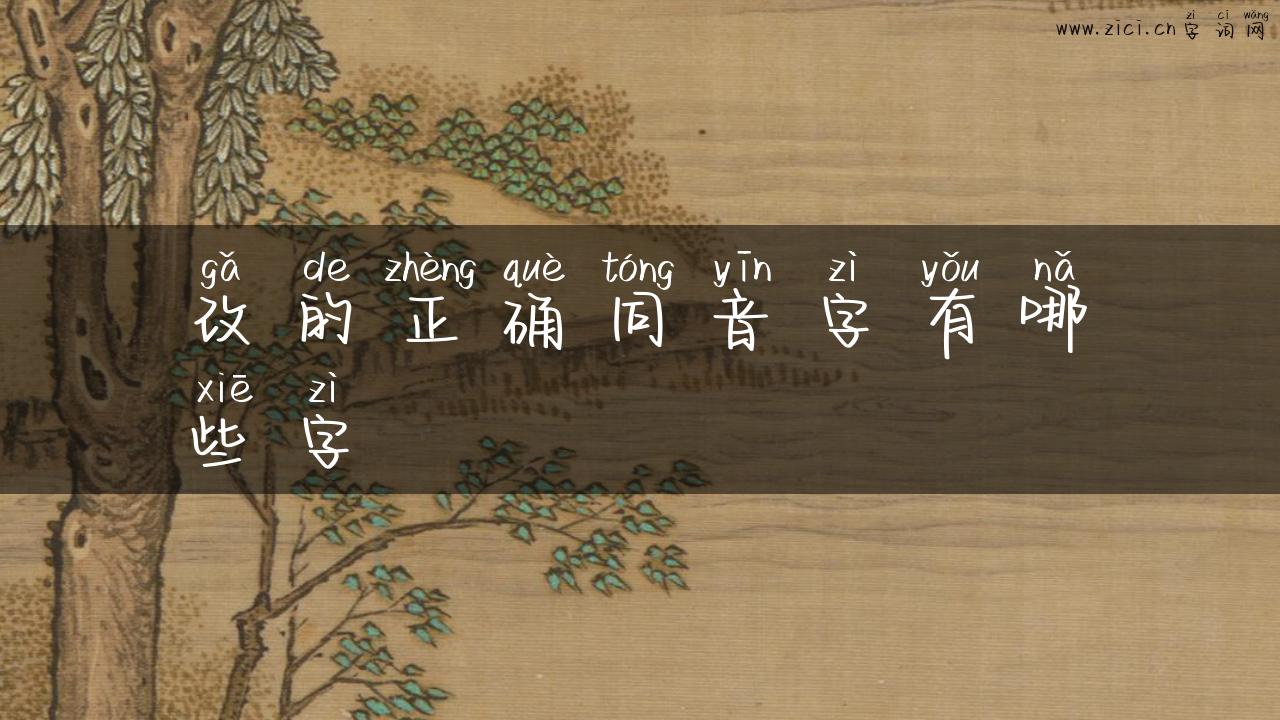 zì cí wǎng
www.zici.cn字词网
gǎ de zhèng què tóng yīn zì yǒu nǎ
改的正确同音字有哪
xiē zì
些字